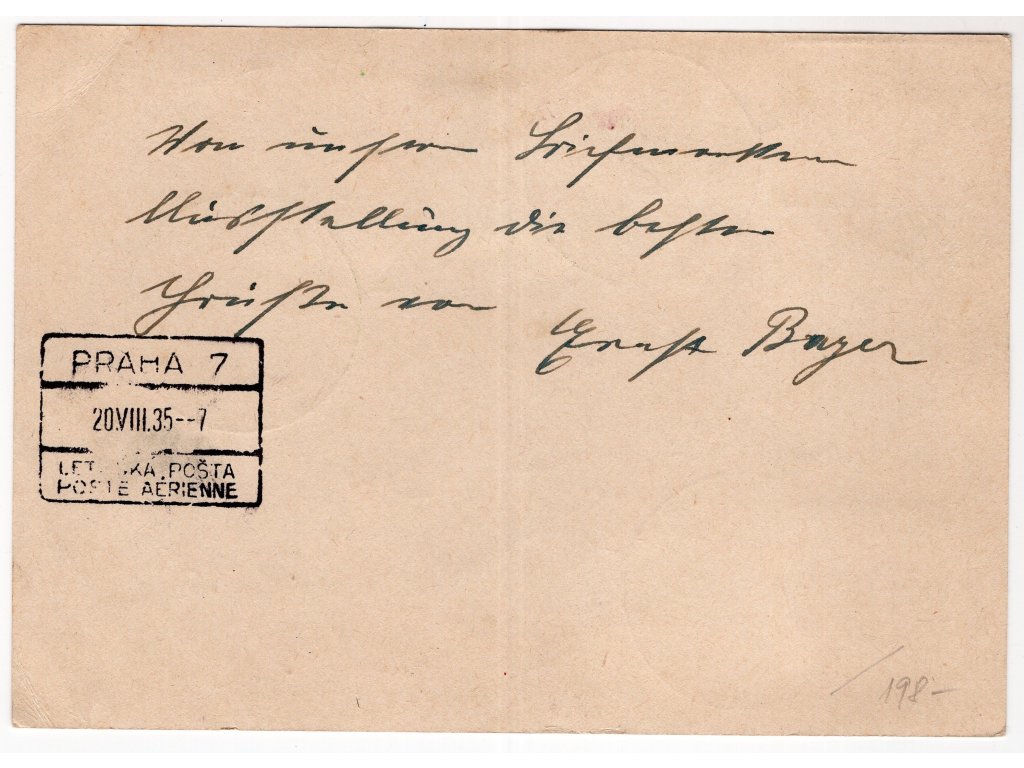 Von unserer Briefmarken
Ausstellung die besten
Grüße von
Ernst Bayer
PRAHA 7
20.VIII.35--7
POŠTA
POSTE AÉRIENNE
198-